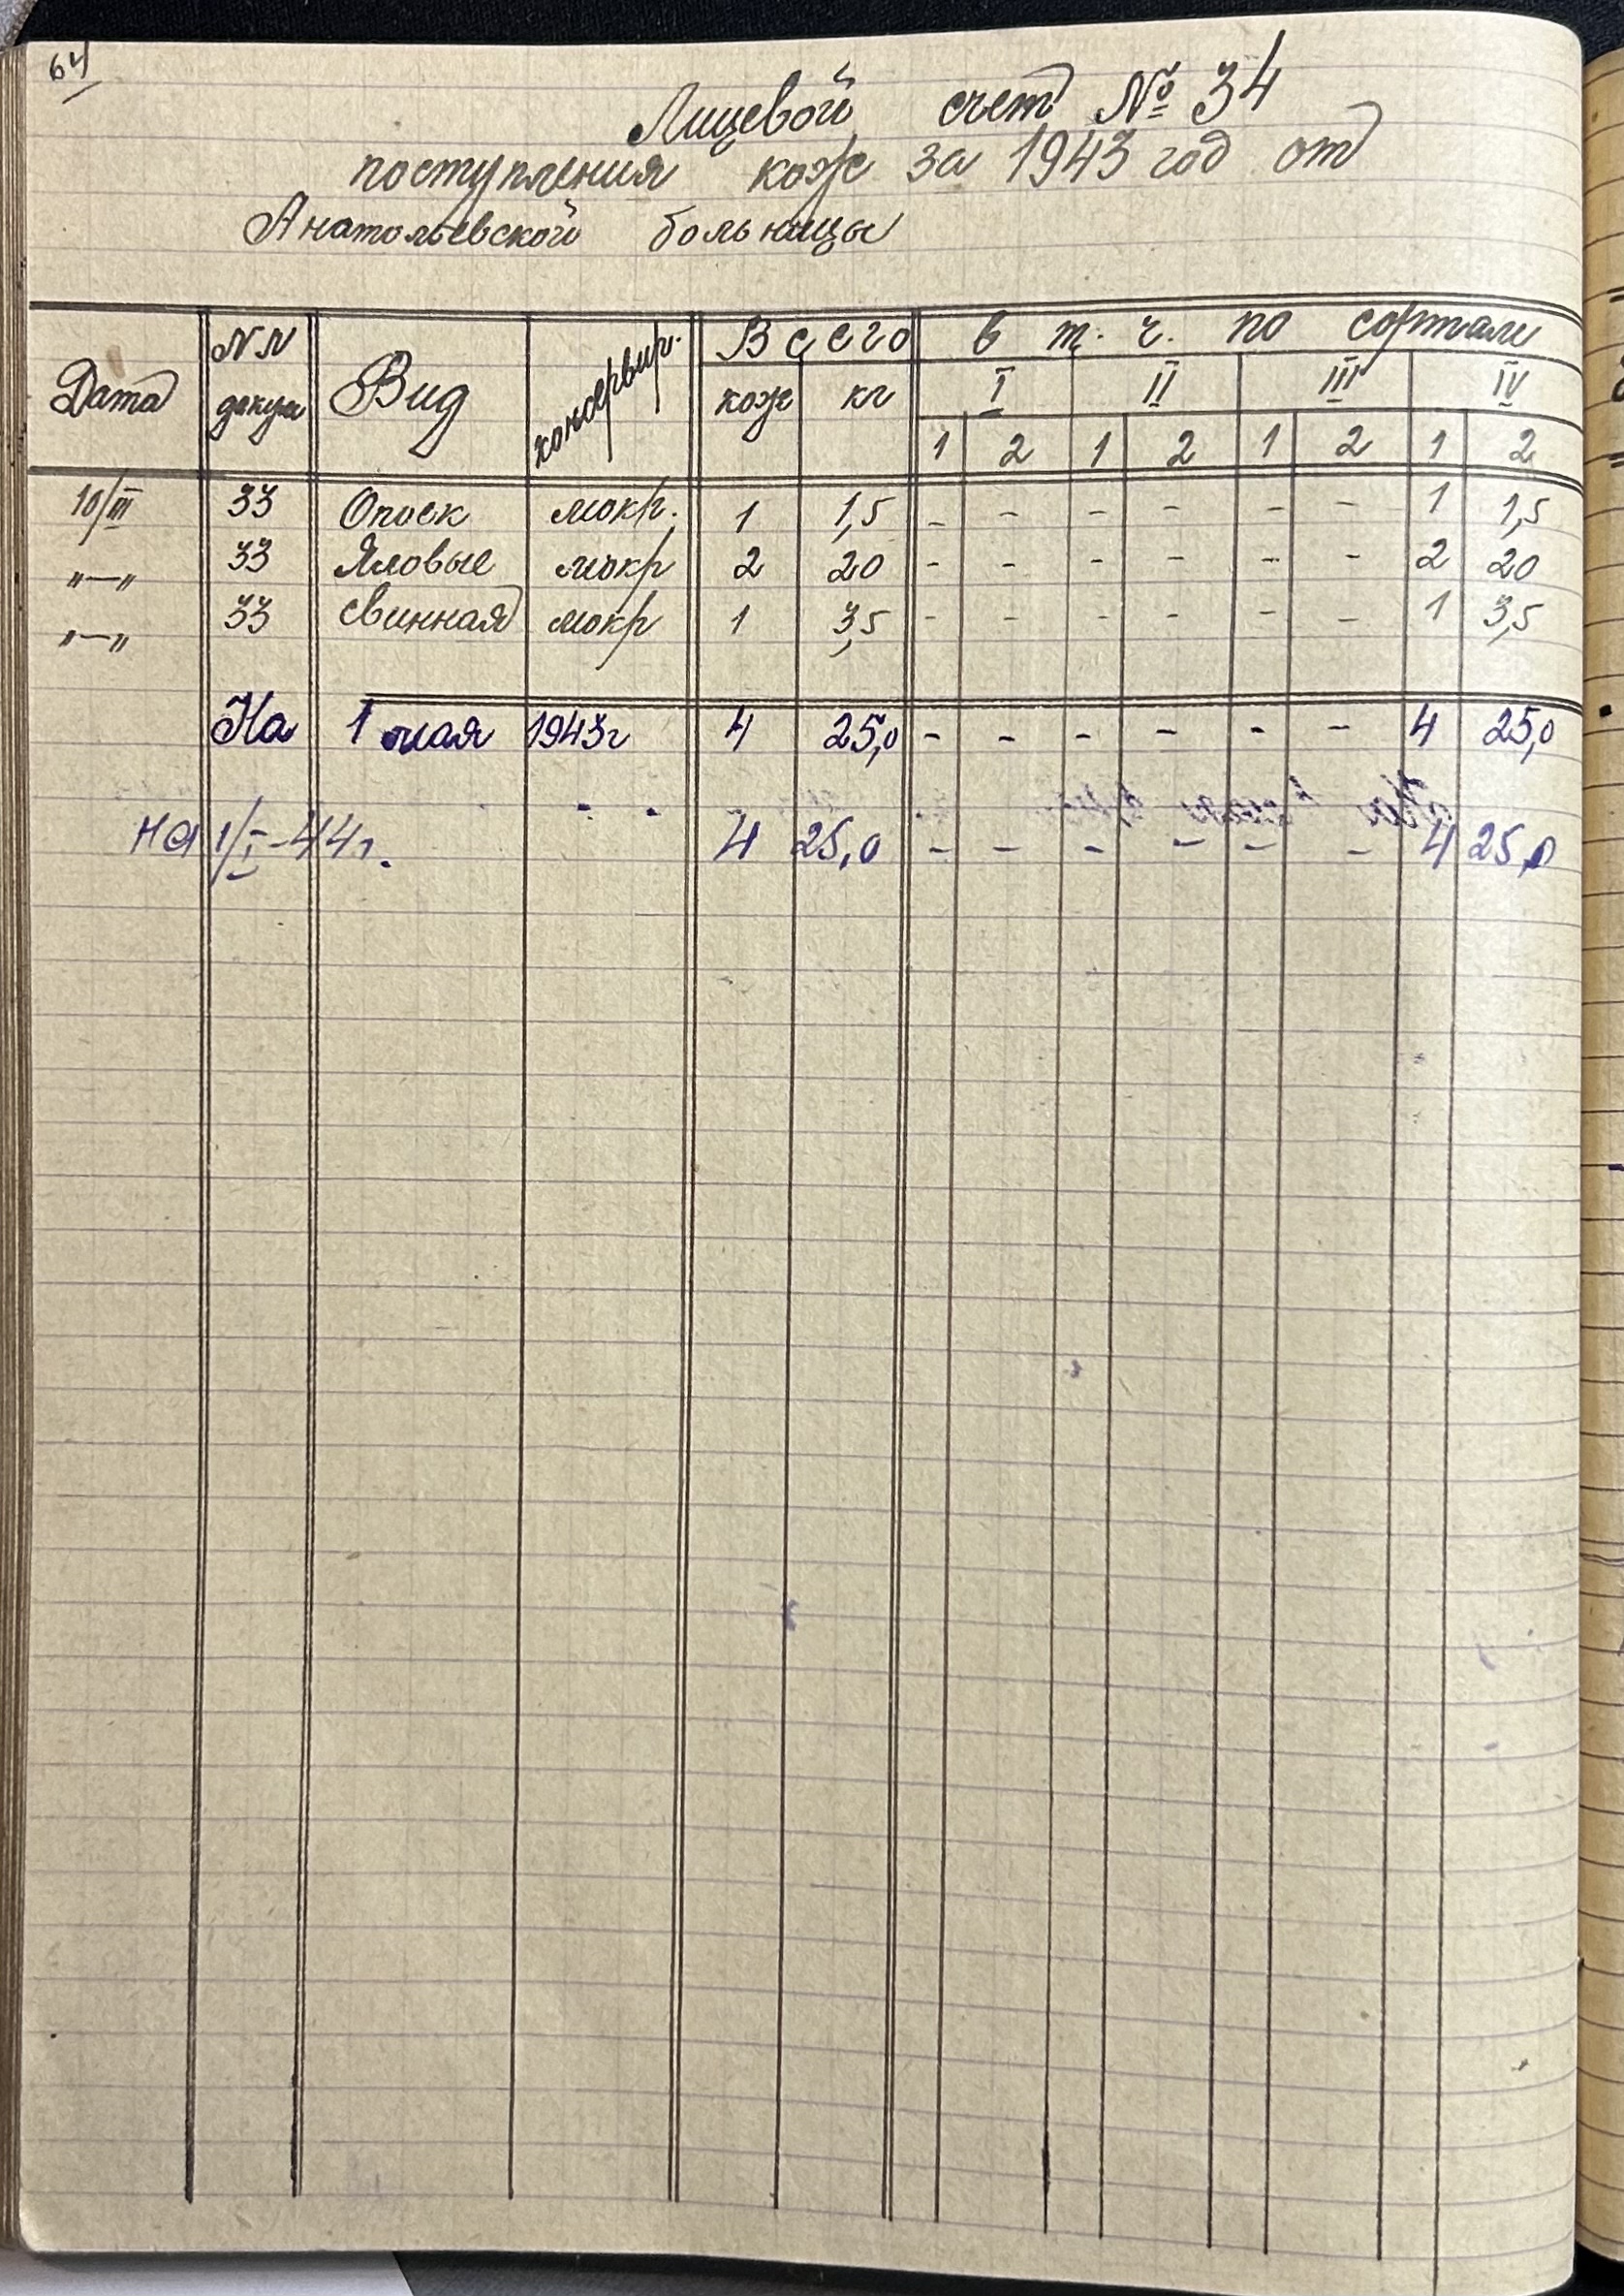 64
Лицевой счет № 34
поступления кож за 1943 год от
Анатольевской больницы
Дата NN докум Вид консервир. Всего в т. ч. по сортам
кож кг I II III IV
1 2 1 2 1 2 1 2
10/III 33 Опоек мокр. 1 1,5 - - - - - - 1 1,5
"—" 33 Яловые мокр 2 20 - - - - - - 2 20
"—" 33 свинная мокр 1 3,5 - - - - - - 1 3,5
На 1 мая 1943г 4 25,0 - - - - - - 4 25,0
на 1/I-44г. 4 25,0 - - - - - - 4 25,0